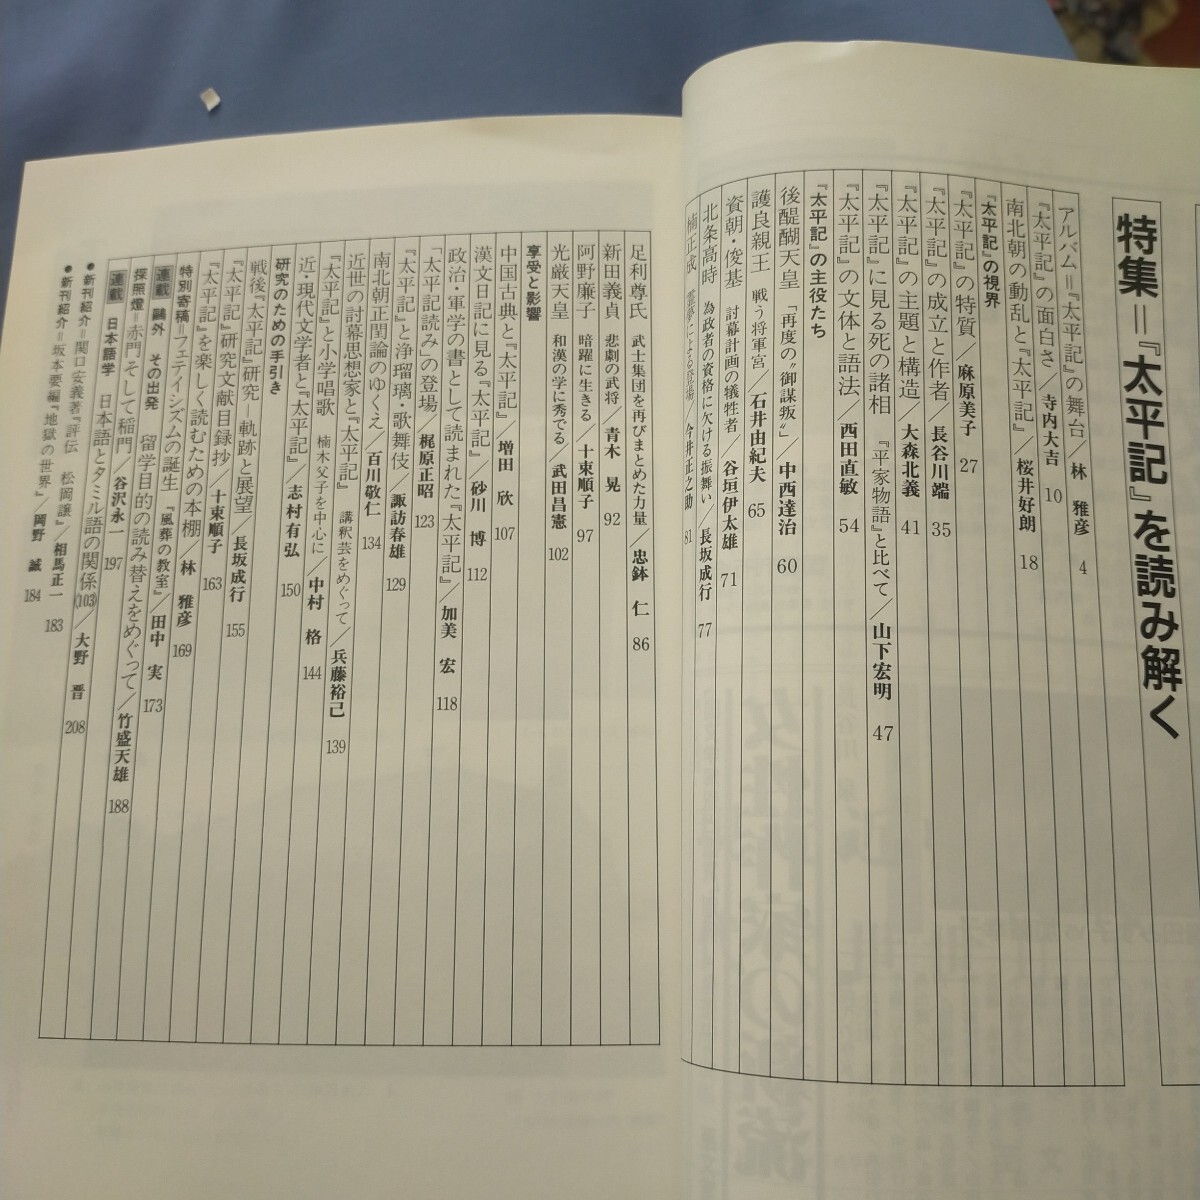 特集＝『太平記』を読み解く
アルバム＝『太平記』の舞台／林　雅彦　4
『太平記』の面白さ／寺内大吉　10
南北朝の動乱と『太平記』／桜井好朗　18
『太平記』の視界
『太平記』の特質／麻原美子　27
『太平記』の成立と作者／長谷川端　35
『太平記』の主題と構造／大森北義　41
『太平記』に見る死の諸相　『平家物語』と比べて／山下宏明　47
『太平記』の文体と語法／西田直敏　54
『太平記』の主役たち
後醍醐天皇　「再度の〝御謀叛〟」／中西達治　60
護良親王　戦う将軍宮／石井由紀夫　65
資朝・俊基　討幕計画の犠牲者／谷垣伊太雄　71
北条高時　為政者の資格に欠ける振舞い／長坂成行　77
楠正成　霊夢による登場／今井正之助　81
足利尊氏　武士集団を再びまとめた力量／忠鉢　仁　86
新田義貞　悲劇の武将／青木　晃　92
阿野廉子　暗躍に生きる／十束順子　97
光厳天皇　和漢の学に秀でる／武田昌憲　102
享受と影響
中国古典と『太平記』／増田　欣　107
漢文日記に見る『太平記』／砂川　博　112
政治・軍学の書として読まれた『太平記』／加美　宏　118
「太平記読み」の登場／梶原正昭　123
『太平記』と浄瑠璃・歌舞伎／諏訪春雄　129
南北朝正閏論のゆくえ／百川敬仁　134
近世の討幕思想家と『太平記』　講釈芸をめぐって／兵藤裕己　139
『太平記』と小学唱歌　楠木父子を中心に／中村　格　144
近・現代文学者と『太平記』／志村有弘　150
研究のための手引き
戦後『太平記』研究―軌跡と展望／長坂成行　155
『太平記』研究文献目録抄／十束順子　163
『太平記』を楽しく読むための本棚／林　雅彦　169
特別寄稿＝フェティシズムの誕生　『風葬の教室』／田中　実　173
連載　鷗外　その出発　留学目的の読み替えをめぐって／竹盛天雄　188
探照燈＝赤門そして稲門／谷沢永一　197
連載　日本語学　日本語とタミル語の関係(103)／大野　晋　208
●新刊紹介＝関口安義著『評伝　松岡譲』／相馬正一　183
●新刊紹介＝坂本要編『地獄の世界』／岡野　誠　184